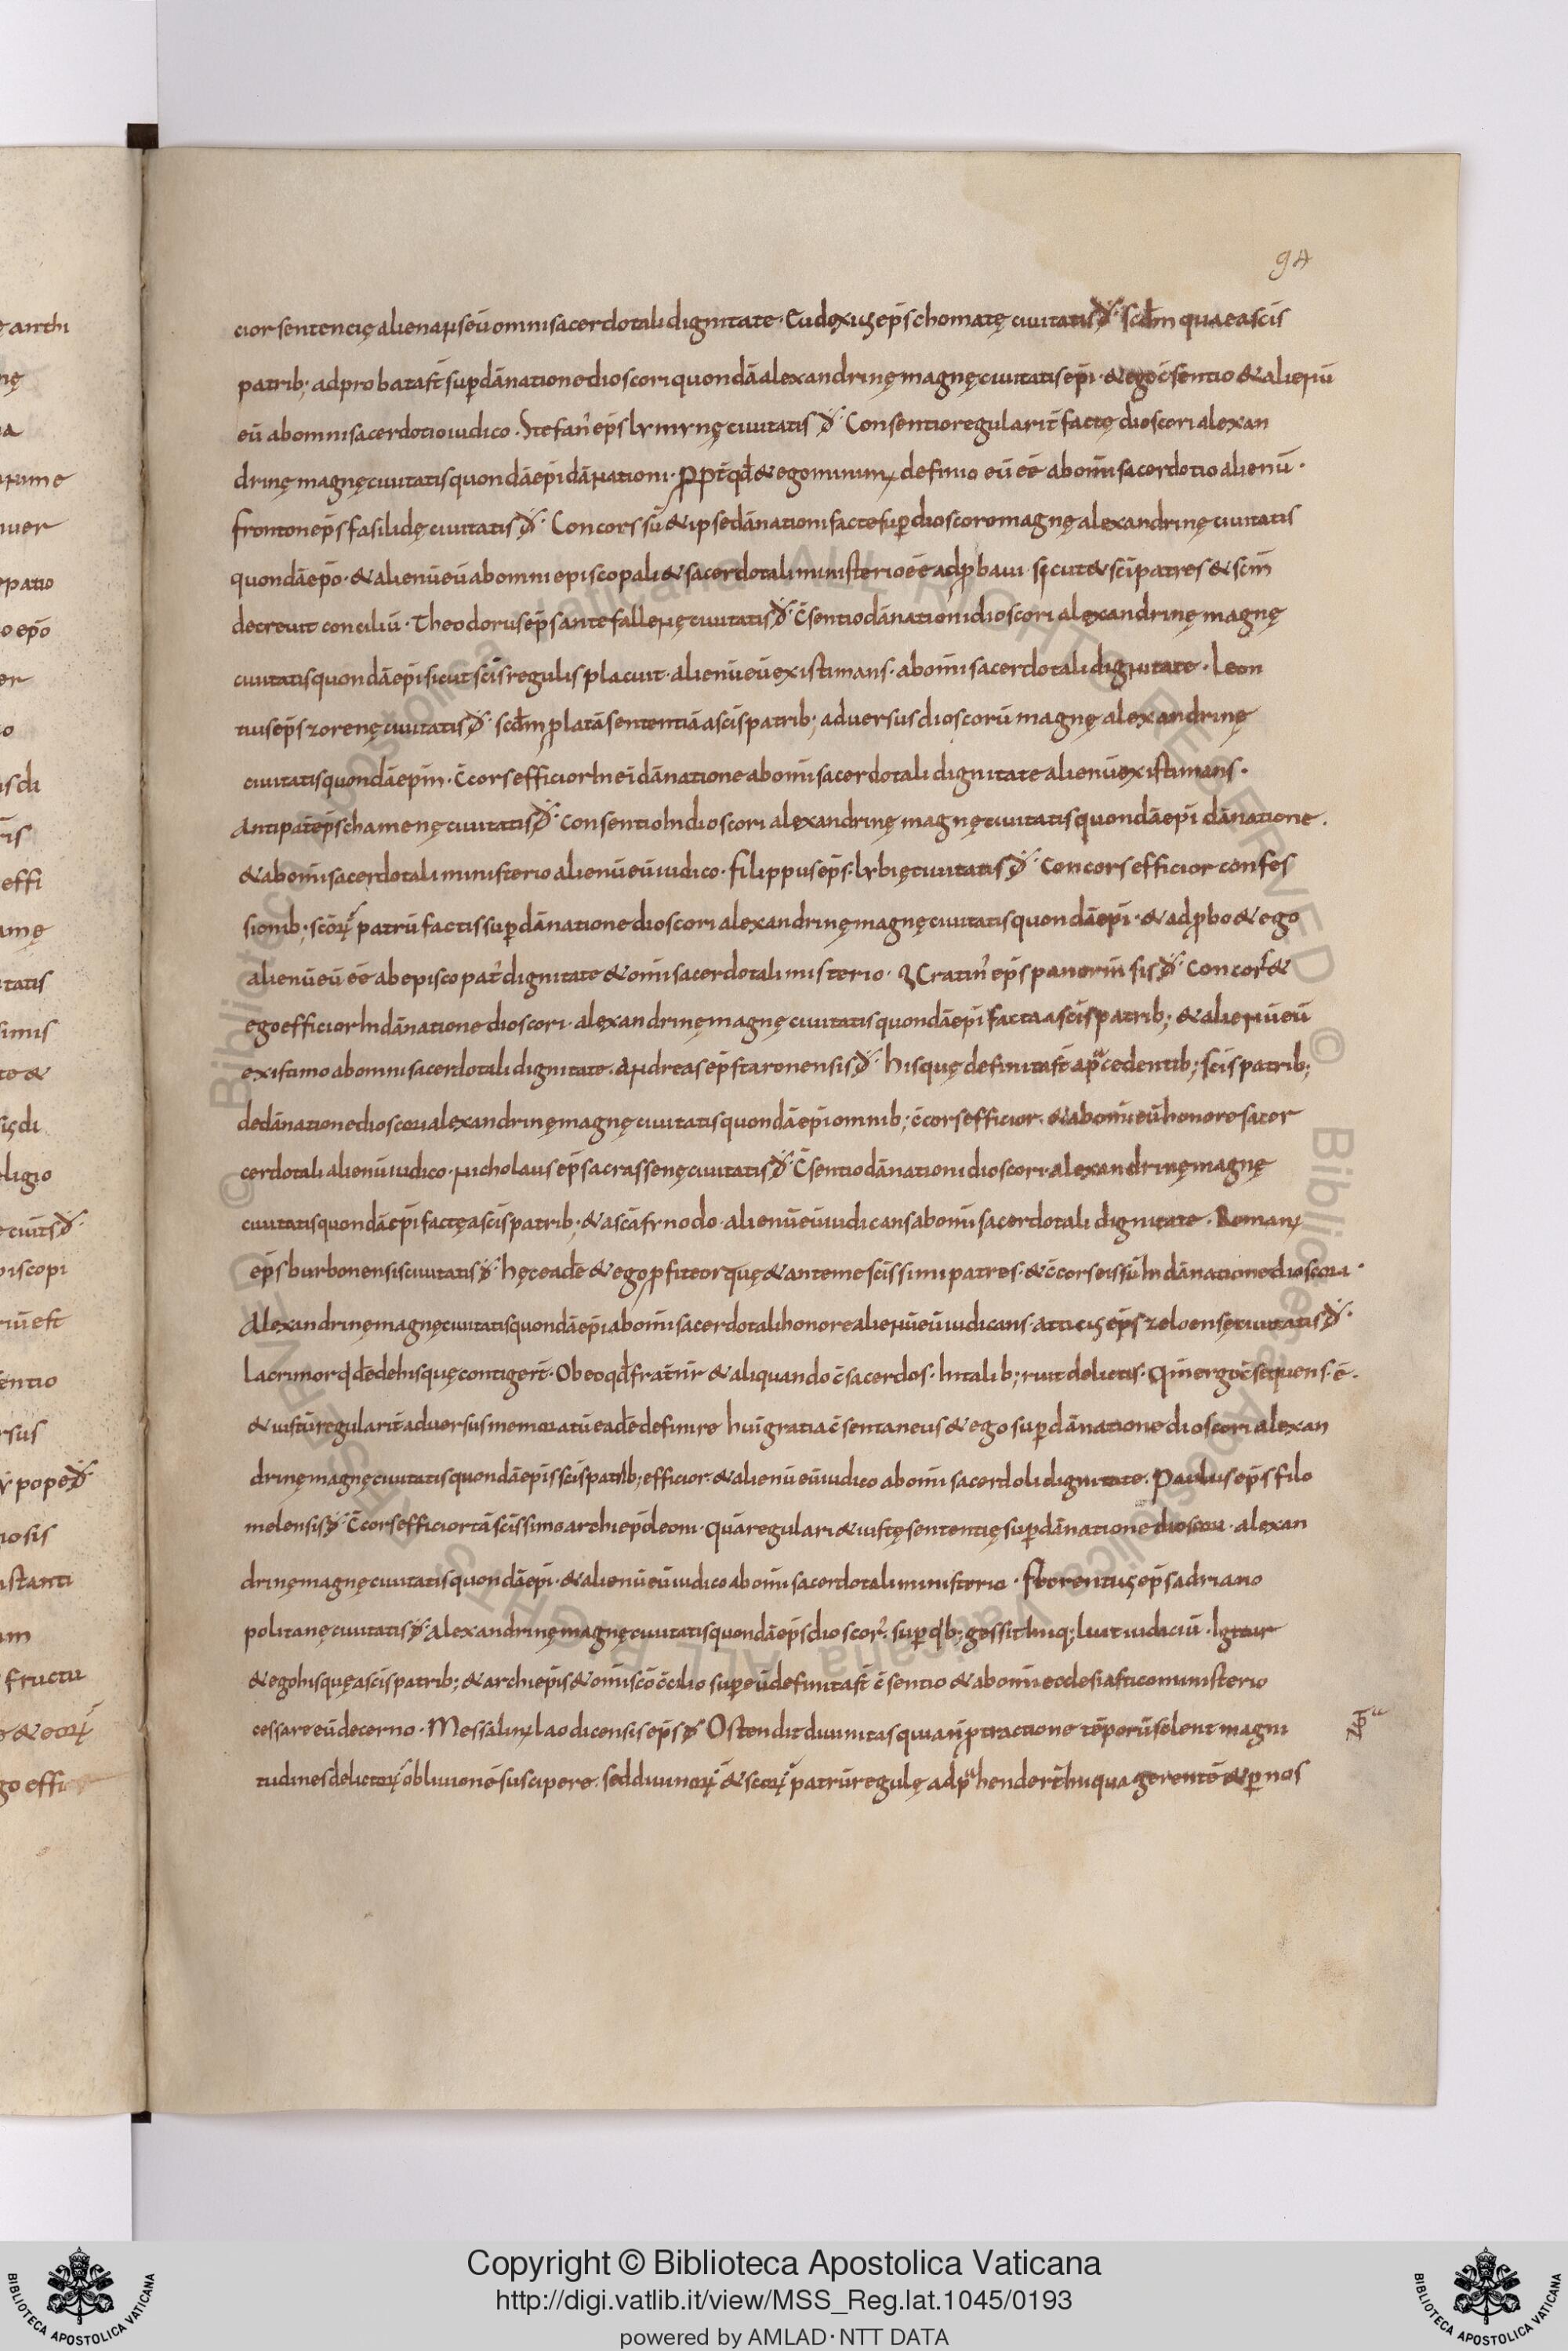 94
cior sentencię alienans eū omni sacerdotali dignitate · Eudoxius ep̄s chomatę ciuitatis đ · scđm quae a scīs
patrib; adprobata st̄ sup dānatione dioscori quondā alexandrinę magnę ciuitatis ep̄i · & ego c̄sentio & alienū
eū ab omni sacerdotio iudico · Stefan' ep̄s lymynę ciuitatis đ · Consentio regularit̄ factę dioscori alexan
drinę magnę ciuitatis quondā ep̄i dānationi · ꝓpt̄ qđ & ego definio eū eē ab om̄i sacerdotio alienū ·
fronton ep̄s fasilidę ciuitatis đ · Concors sū & ipse dānationi facte sup dioscoro magnę alexandrinę ciuitatis
quondā ep̄o · & alienū eū ab omni episcopali & sacerdotali ministerio eē adꝓbaui · sicut & scī patres & scm̄
decreuit conciliū · Theodorus ep̄s antefallenę ciuitatis đ · c̄sentio dānationi dioscori alexandrinę magnę
ciuitatis quondā ep̄i sicut scīs regulis placuit · alienū eū existimans · ab om̄i sacerdotali dignitate · Leon
tius ep̄s zorenę ciuitatis đ · scđm ꝓlatā sententiā a scīs patrib; aduersus dioscorū magnę alexandrinę
ciuitatis quondā ep̄m · c̄cors efficior In ei dānatione ab om̄i sacerdotali dignitate alienū existimans ·
Antipat̄ ep̄s chamenę ciuitatis đ · consentio In dioscori alexandrinę magnę ciuitatis quondā ep̄i dānatione ·
& ab om̄i sacerdotali ministerio alienū eū iudico · filippus ep̄s · lybię ciuitatis đ · Concors efficior confes
sionib; scōꝝ patrū factis sup dānatione dioscori alexandrinę magnę ciuitatis quondā ep̄i · & adꝓbo & ego
alienū eū eē ab episcopat' dignitate & om̄i sacerdotali misterio · Cratin' ep̄s panorm̄sis đ · Concor' &
ego efficior In dānatione dioscori · alexandrinę magnę ciuitatis quondā ep̄i facta a scīs patrib; & alienū eū
existimo ab omni sacerdotali dignitate · Andreas ep̄s taronensis đ · hisque definita st̄ a pᵃcedentib; scīs patrib;
de dānatione dioscori alexandrinę magnę ciuitatis quondā ep̄i omnib; c̄cors efficior · & ab om̄i eū honore sacer
cerdotali alienū iudico · Nicholaus ep̄s acrassenę ciuitatis đ · C̄sentio dānationi dioscori · alexandrinę magnę
ciuitatis quondā ep̄i factę a scīs patrib; & a scā synodo · alienū eū iudicans ab om̄i sacerdotali dignitate · Roman'
ep̄s burbonensis ciuitatis đ · hęc eadē & ego ꝓfiteor quę & ante me scīssimi patres · & c̄cors eis sū In dānatione dioscori ·
Alexandrinę magnę ciuitatis quondā ep̄i ab om̄i sacerdotali honore alienū eū iudicans · atticus ep̄s zeloensę ciuitatis đ ·
Lacrimor qđē de hisquę contiger̄t · Ob eo qđ frat̄ nr̄ & aliquando c̄sacerdos · In talib; ruit delictis · Qm̄ ergo c̄sequens · ē ·
& iustū regularit̄ aduersus memoratū eadē definire hui' gratia c̄sentaneus & ego sup dānatione dioscori alexan
drinę magnę ciuitatis quondā ep̄i s scīs patrib; efficior · & alienū eū iudico ab om̄i sacerdoli dignitate · Paulus ep̄s filo
melensis đ · C̄cors efficior tā scīssimo archiep̄o leoni · quā regulari & iustę sententię sup dānatione dioscori · alexan
drinę magnę ciuitatis quondā ep̄i · & alienū eū iudico ab om̄i sacerdotali ministerio · florentius ep̄s adriano
politanę ciuitatis đ · Alexandrinę magnę ciuitatis quondā ep̄s dioscor' · sup qb; gessit Iniq; luit iudiciū · Igitur
& ego hisquę a scīs patrib; & archiep̄is & om̄i scō c̄cilio sup eū definita st̄ c̄sentio & ab om̄i ecclesiastico ministerio
cessare eū decerno · Messalin' laodicensis ep̄s đ Ostendit diuinitas quia n̄ ꝓtractione tēporū solent magni
tudines delictoꝝ obliuionē suscipere · sed diuinoꝝ & scoꝝ patrū regulę adpᵃhender̄t Iniqua gerentē & p nos
Copyright © Biblioteca Apostolica Vaticana
http://digi.vatlib.it/view/MSS_Reg.lat.1045/0193
powered by AMLAD·NTT DATA